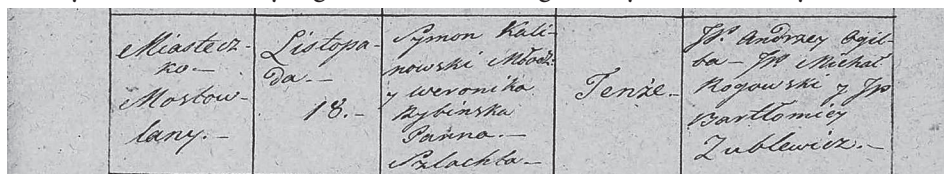 Miastecz-
ko.—
Mostow-
lany.—
Listopa-
da.—
18.—
Symon Kali-
nowski Młodz:
y Weronika
Rybinska
Panna.—
Szlachta—
Tenże.—
JP. Andrzey Ogil-
ba— JP Michał
Rogowski y JP
Bartłomiey
Zublewicz.—